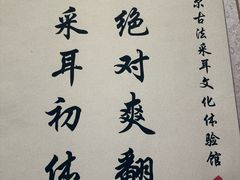 京古法采耳文化体验馆
绝对爽翻
采耳初体